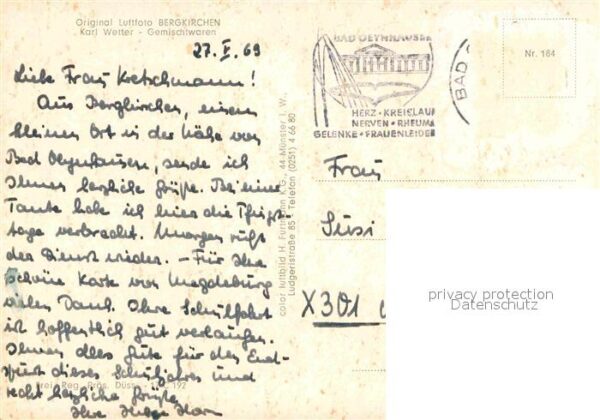 Original Luftfoto BERGKIRCHEN
Karl Wetter - Gemischtwaren
27. V. 69
Liebe Frau Kretschmann!
Aus Bergkirchen, einem
kleinen Ort in der Nähe von
Bad Oeynhausen, sende ich
Ihnen herzliche Grüße. Bei einer
Tante habe ich hier die Pfingst-
tage verbracht. Morgen ruft
der Dienst wieder. - Für Ihre
schöne Karte von Magdeburg
vielen Dank. Ihre Schulfahrt
ist hoffentlich gut verlaufen.
Ihnen alles Gute für den End-
spurt dieses Schuljahres und
recht herzliche Grüße
Ihre Helga
Frei Reg. Präs. Düss. 192
color luftbild H. Fuhrmann K.G., 44-Münster i. W.
Ludgeristraße 85 · Telefon (0251) 4 66 80
BAD OEYNHAUSEN
HERZ · KREISLAUF
NERVEN · RHEUMA
GELENKE · FRAUENLEIDEN
BAD
Nr. 184
Frau
Susi
X301
privacy protection
Datenschutz